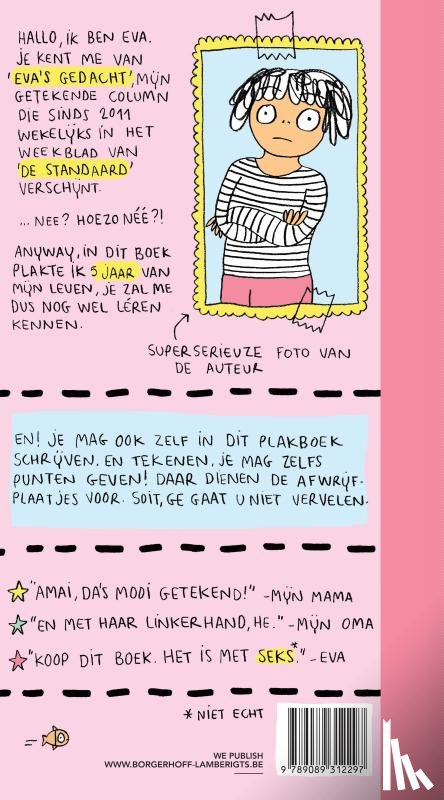 HALLO, IK BEN EVA.
JE KENT ME VAN
'EVA'S GEDACHT', MIJN
GETEKENDE COLUMN
DIE SINDS 2011
WEKELIJKS IN HET
WEEKBLAD VAN
'DE STANDAARD'
VERSCHIJNT.
... NEE? HOEZO NÉÉ?!
ANYWAY, IN DIT BOEK
PLAKTE IK 5 JAAR VAN
MIJN LEVEN, JE ZAL ME
DUS NOG WEL LÉREN
KENNEN.
SUPERSERIEUZE FOTO VAN
DE AUTEUR
EN! JE MAG OOK ZELF IN DIT PLAKBOEK
SCHRIJVEN. EN TEKENEN, JE MAG ZELFS
PUNTEN GEVEN! DAAR DIENEN DE AFWRIJF-
PLAATJES VOOR. SOIT, GE GAAT U NIET VERVELEN.
"AMAI, DA'S MOOI GETEKEND!" -MIJN MAMA
"EN MET HAAR LINKERHAND, HE." -MIJN OMA
"KOOP DIT BOEK. HET IS MET SEKS*." -EVA
* NIET ECHT
WE PUBLISH
WWW.BORGERHOFF-LAMBERIGTS.BE
9 789089 312297